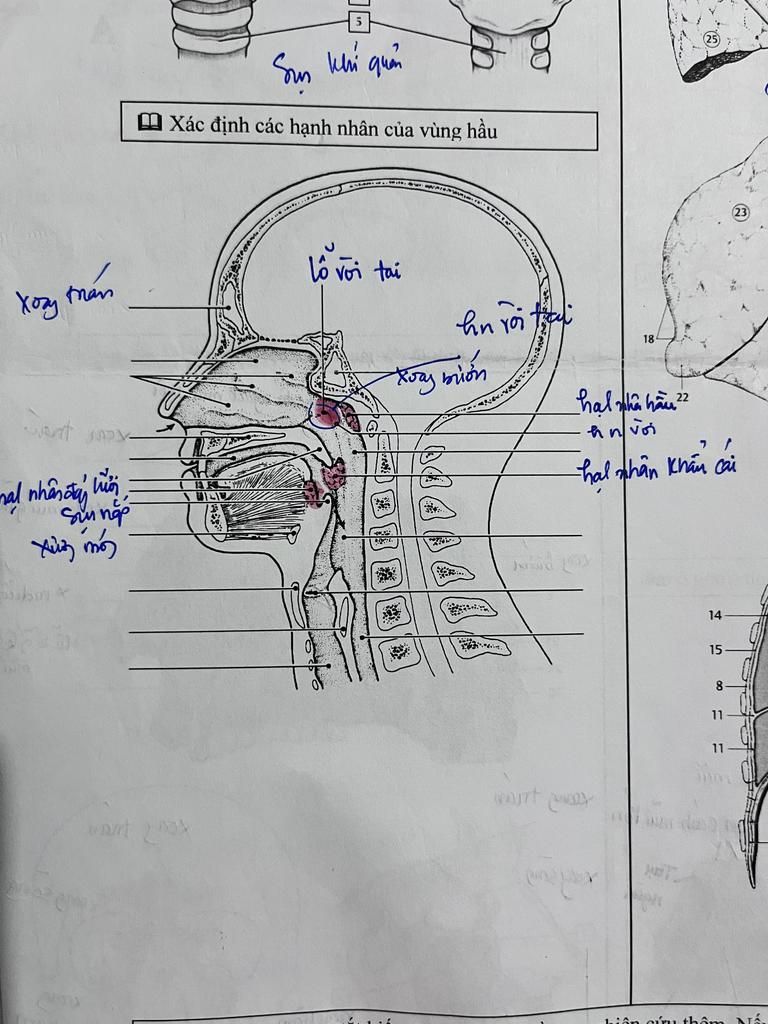 5
25
Sụn khí quản
Xác định các hạnh nhân của vùng hầu
23
lỗ vòi tai
xoang trán
hn vòi tai
18
xoang bướm
22
hạnh nhân hầu
hn vòi
hạnh nhân khẩu cái
hạnh nhân đáy lưỡi
Sụn nắp
xương móng
14
15
8
11
11